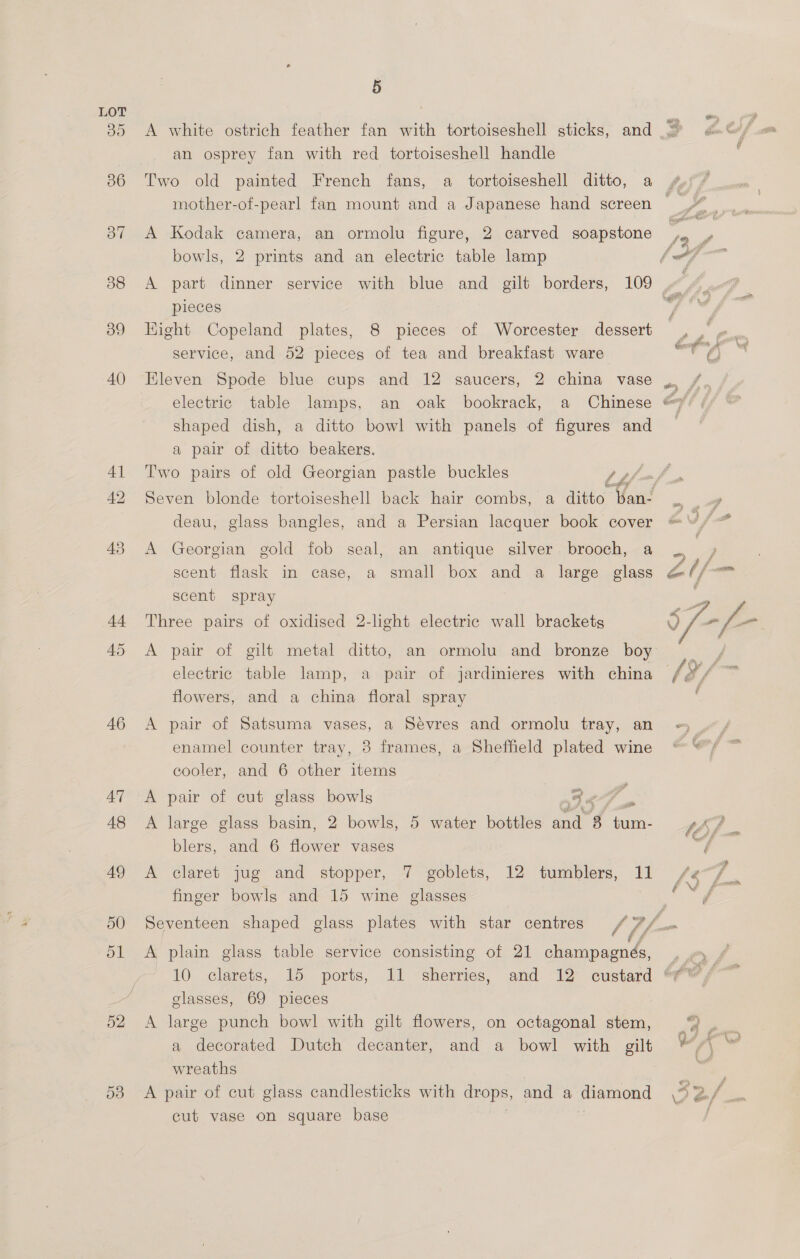 5
LOT
35 A white ostrich feather fan with tortoiseshell sticks, and
an osprey fan with red tortoiseshell handle
36 Two old painted French fans, a tortoiseshell ditto, a
mother-of-pearl fan mount and a Japanese hand screen
37 A Kodak camera, an ormolu figure, 2 carved soapstone
bowls, 2 prints and an electric table lamp
38 A part dinner service with blue and gilt borders, 109
pieces
39 Eight Copeland plates, 8 pieces of Worcester dessert
service, and 52 pieces of tea and breakfast ware
40 Eleven Spode blue cups and 12 saucers, 2 china vase
electric table lamps, an oak bookrack, a Chinese
shaped dish, a ditto bowl with panels of figures and
a pair of ditto beakers.
41 Two pairs of old Georgian pastle buckles
42 Seven blonde tortoiseshell back hair combs, a ditto ban-
deau, glass bangles, and a Persian lacquer book cover
43 A Georgian gold fob seal, an antique silver brooch, a
scent flask in case, a small box and a large glass
scent spray
44 Three pairs of oxidised 2-light electric wall brackets
45 A pair of gilt metal ditto, an ormolu and bronze boy
electric table lamp, a pair of jardinieres with china
flowers, and a china floral spray
46 A pair of Satsuma vases, a Sèvres and ormolu tray, an
enamel counter tray, 3 frames, a Sheffield plated wine
cooler, and 6 other items
47 A pair of cut glass bowls
48 A large glass basin, 2 bowls, 5 water bottles and 8 tum-
blers, and 6 flower vases
49 A claret jug and stopper, 7 goblets, 12 tumblers, 11
finger bowls and 15 wine glasses
50 Seventeen shaped glass plates with star centres
51 A plain glass table service consisting of 21 champagnés,
10 clarets, 15 ports, 11 sherries, and 12 custard
glasses, 69 pieces
52 A large punch bowl with gilt flowers, on octagonal stem,
a decorated Dutch decanter, and a bowl with gilt
wreaths
53 A pair of cut glass candlesticks with drops, and a diamond
cut vase on square base